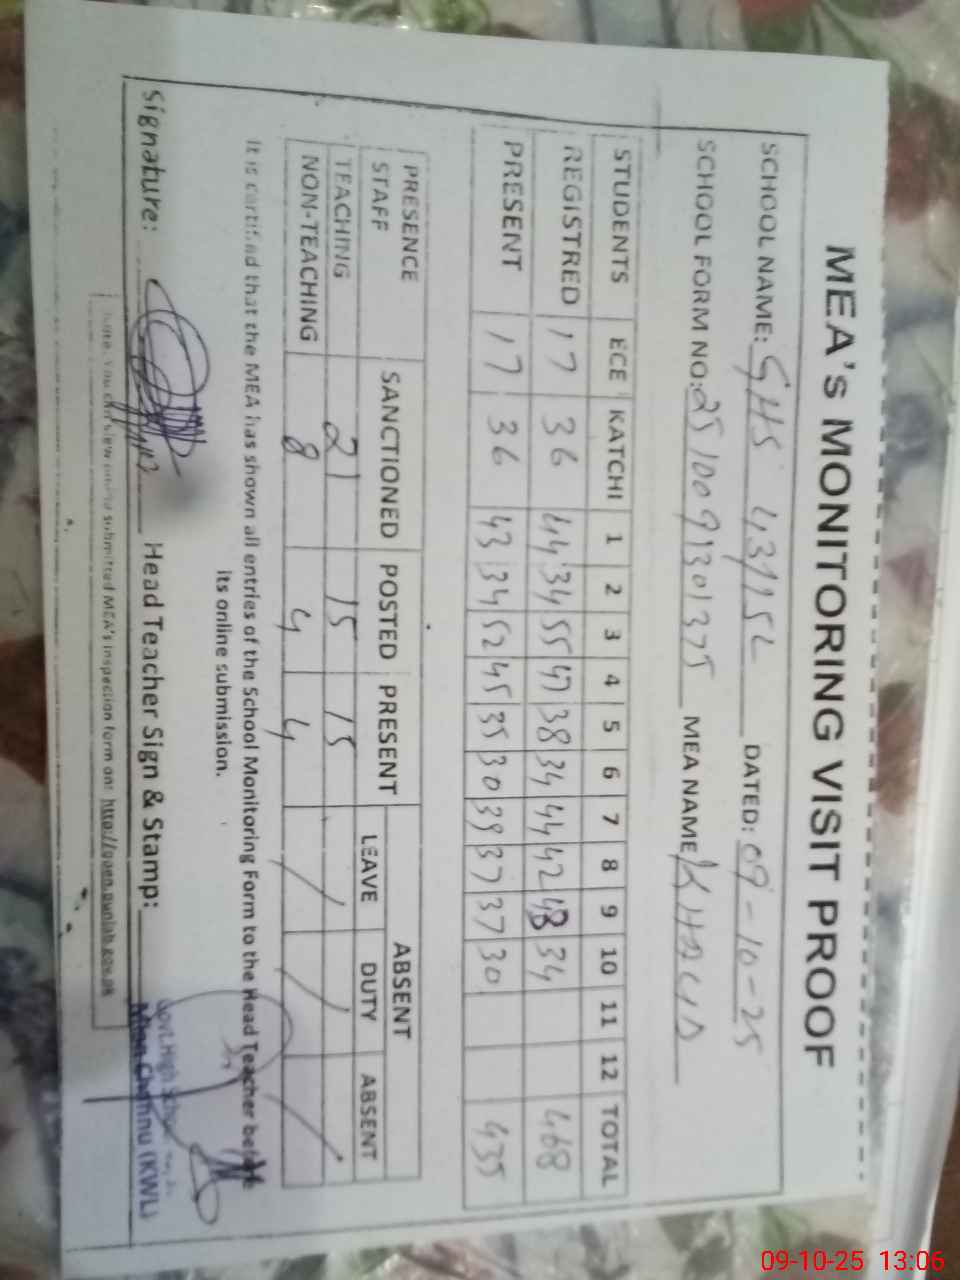 MEA's MONITORING VISIT PROOF
SCHOOL NAME: GHS 439152 DATED: 09-10-25
SCHOOL FORM NO: 2510091301375 MEA NAME KHALID
STUDENTS ECE KATCHI 1 2 3 4 5 6 7 8 9 10 11 12 TOTAL
REGISTRED 17 36 44 34 55 47 38 34 44 42 43 34 468
PRESENT 17 36 43 34 52 45 35 30 39 37 37 30 435
PRESENCE STAFF SANCTIONED POSTED PRESENT ABSENT
LEAVE DUTY ABSENT
TEACHING 21 15 15 /
NON-TEACHING 8 4 4 /
It is certified that the MEA has shown all entries of the School Monitoring Form to the Head Teacher before
its online submission.
Signature: Head Teacher Sign & Stamp:
Govt. High School
Mian Channu (KWL)
Note: You can view online submitted MEA's inspection form on: http://open.punjab.gov.pk
09-10-25 13:06